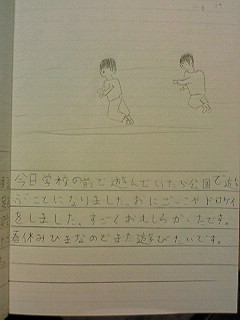 今日学校の前で遊んでいたら公園で遊
ぶことになりました。おにごっこやドロケイ
をしました。すごくおもしろかったです。
春休みひまなのでまた遊びたいです。